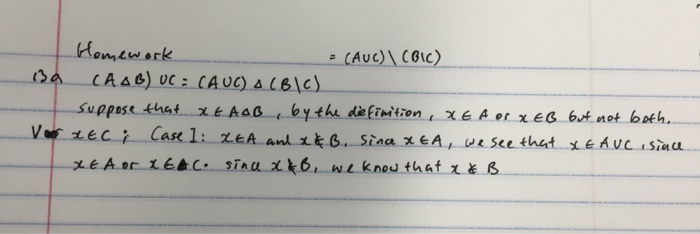 Homework = (AUC)\(B\C)
13a (A∆B) UC = (AUC) ∆ (B\C)
suppose that x ∈ A∆B, by the difinition, x ∈ A or x ∈ B but not both.
V x ∈ C; Case I: x ∈ A and x ∉ B. Since x ∈ A, we see that x ∈ AUC, since
x ∈ A or x ∈ C. since x ∉ B, we know that x ∉ B